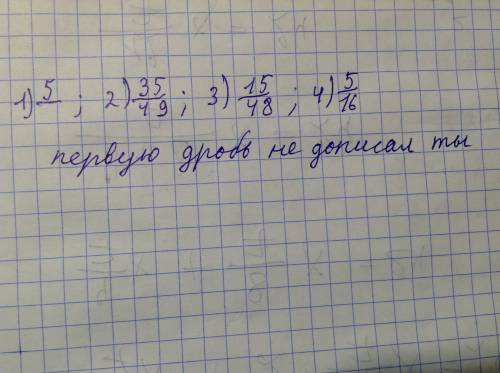 1) 5/ ; 2) 35/49 ; 3) 15/48 ; 4) 5/16
первую дробь не дописал ты